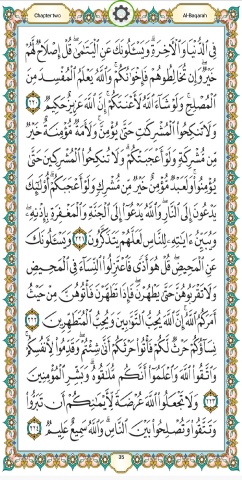 Chapter two
Al-Baqarah
فِى ٱلدُّنْيَا وَٱلْأَخِرَةِ وَيَسْـَٔلُونَكَ عَنِ ٱلْيَتَـٰمَىٰ قُلْ إِصْلَاحٌ لَّهُمْ
خَيْرٌ وَإِن تُخَالِطُوهُمْ فَإِخْوَٰنُكُمْ وَٱللَّهُ يَعْلَمُ ٱلْمُفْسِدَ مِنَ
ٱلْمُصْلِحِ وَلَوْ شَآءَ ٱللَّهُ لَأَعْنَتَكُمْ إِنَّ ٱللَّهَ عَزِيزٌ حَكِيمٌ ٢٢٠
وَلَا تَنكِحُوا۟ ٱلْمُشْرِكَـٰتِ حَتَّىٰ يُؤْمِنَّ وَلَأَمَةٌ مُّؤْمِنَةٌ خَيْرٌ
مِّن مُّشْرِكَةٍ وَلَوْ أَعْجَبَتْكُمْ وَلَا تُنكِحُوا۟ ٱلْمُشْرِكِينَ حَتَّىٰ
يُؤْمِنُوا۟ وَلَعَبْدٌ مُّؤْمِنٌ خَيْرٌ مِّن مُّشْرِكٍ وَلَوْ أَعْجَبَكُمْ أُو۟لَـٰٓئِكَ
يَدْعُونَ إِلَى ٱلنَّارِ وَٱللَّهُ يَدْعُوٓا۟ إِلَى ٱلْجَنَّةِ وَٱلْمَغْفِرَةِ بِإِذْنِهِۦ
وَيُبَيِّنُ ءَايَـٰتِهِۦ لِلنَّاسِ لَعَلَّهُمْ يَتَذَكَّرُونَ ٢٢١ وَيَسْـَٔلُونَكَ
عَنِ ٱلْمَحِيضِ قُلْ هُوَ أَذًى فَٱعْتَزِلُوا۟ ٱلنِّسَآءَ فِى ٱلْمَحِيضِ
وَلَا تَقْرَبُوهُنَّ حَتَّىٰ يَطْهُرْنَ فَإِذَا تَطَهَّرْنَ فَأْتُوهُنَّ مِنْ حَيْثُ
أَمَرَكُمُ ٱللَّهُ إِنَّ ٱللَّهَ يُحِبُّ ٱلتَّوَّٰبِينَ وَيُحِبُّ ٱلْمُتَطَهِّرِينَ ٢٢٢
نِسَآؤُكُمْ حَرْثٌ لَّكُمْ فَأْتُوا۟ حَرْثَكُمْ أَنَّىٰ شِئْتُمْ وَقَدِّمُوا۟ لِأَنفُسِكُمْ
وَٱتَّقُوا۟ ٱللَّهَ وَٱعْلَمُوٓا۟ أَنَّكُم مُّلَـٰقُوهُ وَبَشِّرِ ٱلْمُؤْمِنِينَ
٢٢٣ وَلَا تَجْعَلُوا۟ ٱللَّهَ عُرْضَةً لِّأَيْمَـٰنِكُمْ أَن تَبَرُّوا۟
وَتَتَّقُوا۟ وَتُصْلِحُوا۟ بَيْنَ ٱلنَّاسِ وَٱللَّهُ سَمِيعٌ عَلِيمٌ ٢٢٤
35